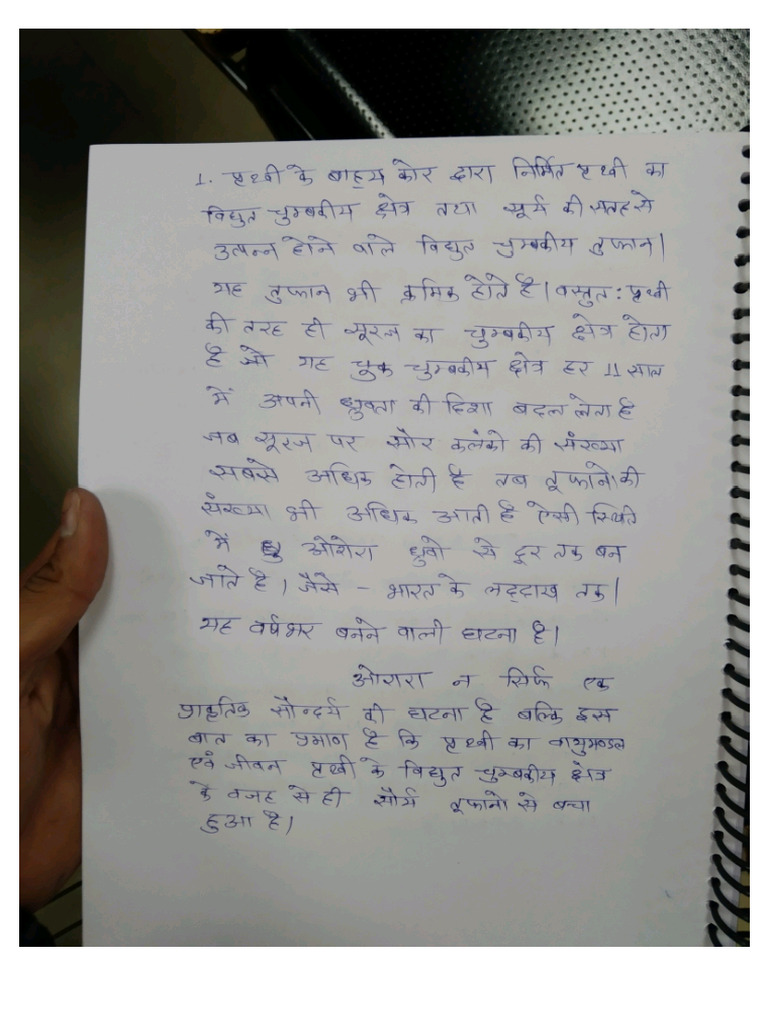 1. पृथ्वी के बाह्य कोर द्वारा निर्मित पृथ्वी का
विद्युत चुम्बकीय क्षेत्र तथा सूर्य की सतह से
उत्पन्न होने वाले विद्युत चुम्बकीय तुफान।
यह तुफान भी क्रमिक होते है। वस्तुत: पृथ्वी
की तरह ही सूरज का चुम्बकीय क्षेत्र होता
है जो यह चुक चुम्बकीय क्षेत्र हर 11 साल
में अपनी ध्रुवता की दिशा बदल लेता है
जब सूरज पर सौर कलंको की संख्या
सबसे अधिक होती है तब तूफानो की
संख्या भी अधिक आती है ऐसी स्थिति
में ओरोरा ध्रुवो से दूर तक बन
जाते है। जैसे - भारत के लद्दाख तक।
यह वर्षभर बनने वाली घटना है।
ओरोरा न सिर्फ एक
प्राकृतिक सौन्दर्य की घटना है बल्कि इस
बात का प्रमाण है कि पृथ्वी का वायुमण्डल
एवं जीवन पृथ्वी के विद्युत चुम्बकीय क्षेत्र
के वजह से ही सौर्य तूफानो से बचा
हुआ है।